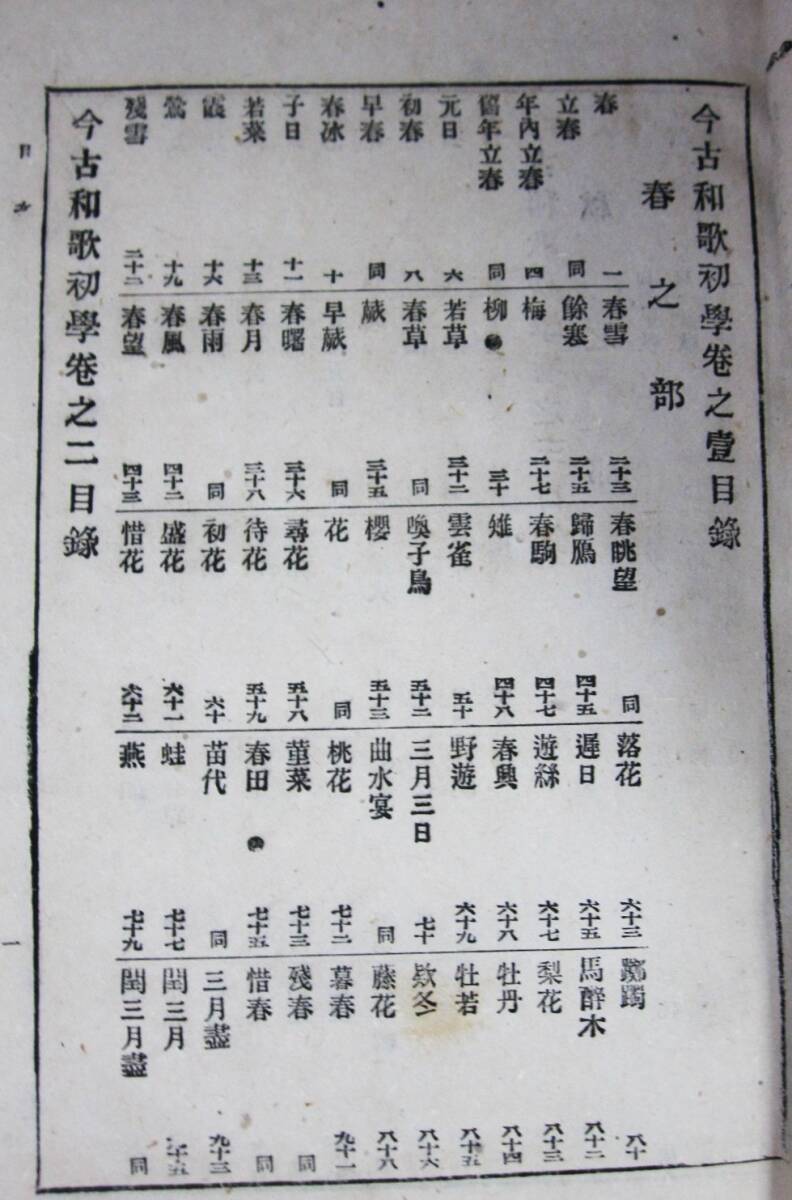 今古和歌初學卷之壹目錄
春之部
春 一
立春 同
年內立春 四
舊年立春 同
元日 六
初春 八
早春 同
春冰 十
子日 十一
若菜 十三
霞 十六
鶯 十九
殘雪 二十二
春雪 二十三
餘寒 二十五
梅 二十七
柳 三十
若草 三十二
春草 同
蕨 三十五
早蕨 同
春曙 三十六
春月 三十八
春雨 同
春風 四十二
春望 四十三
春眺望 同
歸鴈 四十五
春駒 四十七
雉 四十八
雲雀 五十
喚子鳥 五十二
櫻 五十三
花 同
尋花 五十八
待花 五十九
初花 六十
盛花 六十一
惜花 六十二
落花 六十三
遲日 六十五
遊絲 六十七
春興 六十八
野遊 六十九
三月三日 七十
曲水宴 同
桃花 七十二
菫菜 七十三
春田 七十五
苗代 同
蛙 七十七
燕 七十九
躑躅 八十
馬醉木 八十二
梨花 八十三
牡丹 八十四
牡若 八十五
欵冬 八十六
藤花 八十八
暮春 九十一
殘春 同
惜春 同
三月盡 九十三
閏三月
閏三月盡 同
今古和歌初學卷之二目錄
一